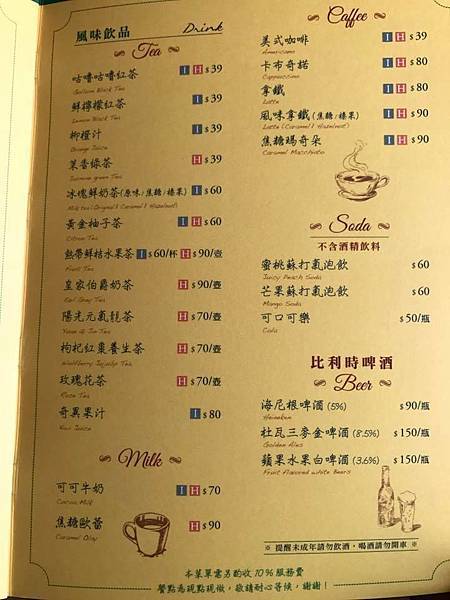 風味飲品 Drink
Tea
咕嚕咕嚕紅茶 I H $39
Gollum Black Tea
鮮檸檬紅茶 I $39
Lemon Black Tea
柳橙汁 I $39
Orange Juice
茉香綠茶 H $39
Jasmine green Tea
冰塊鮮奶茶(原味/焦糖/榛果) I $60
Milk tea(Original/Caramel/Hazelnut)
黃金柚子茶 I H $60
Citron Tea
熱帶鮮桔水果茶 I $60/杯 H $90/壺
Fruit Tea
皇家伯爵奶茶 H $90/壺
Earl Grey Tea
陽光元氣靚茶 H $70/壺
Yuan Qi Jin Tea
枸杞紅棗養生茶 H $70/壺
Wolfberry Jujube Tea
玫瑰花茶 H $70/壺
Rose Tea
奇異果汁 I $80
Kiwi Juice
Milk
可可牛奶 I H $70
Cocoa Milk
焦糖歐蕾 H $90
Caramel Olay
Caffee
美式咖啡 I H $39
Americano
卡布奇諾 I H $80
Cappuccino
拿鐵 I H $80
Latte
風味拿鐵(焦糖/榛果) I H $90
Latte(Caramel/Hazelnut)
焦糖瑪奇朵 I H $90
Caramel Macchiato
Soda
不含酒精飲料
蜜桃蘇打氣泡飲 $60
Juicy Peach Soda
芒果蘇打氣泡飲 $60
Mango Soda
可口可樂 $50/瓶
Cola
比利時啤酒
Beer
海尼根啤酒(5%) $90/瓶
Heineken
杜瓦三麥金啤酒(8.5%) $150/瓶
Golden Ales
蘋果水果白啤酒(3.6%) $150/瓶
Fruit flavored white Beers
※ 提醒未成年請勿飲酒，喝酒請勿開車 ※
本菜單需另酌收10%服務費
餐點為現點現做，敬請耐心等候，謝謝！